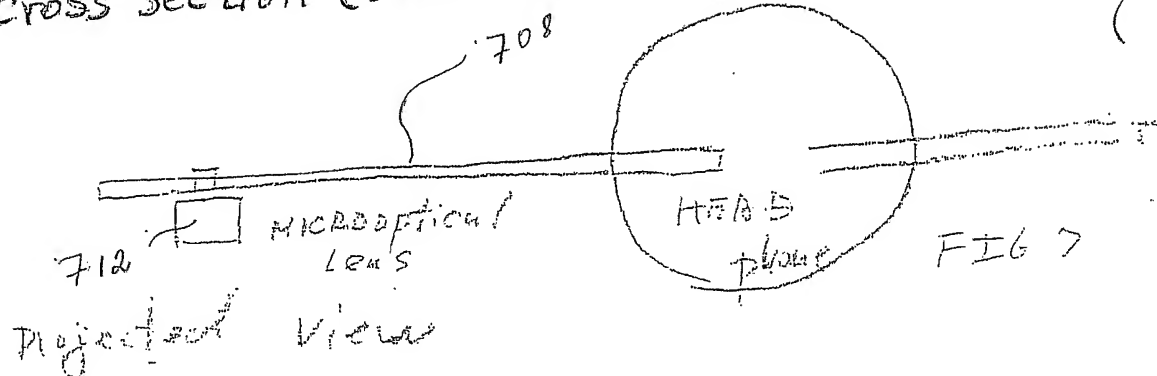 Cross section
708
712
MICROoptical
Lens
HEAD
phone
FIG 7
Projected View